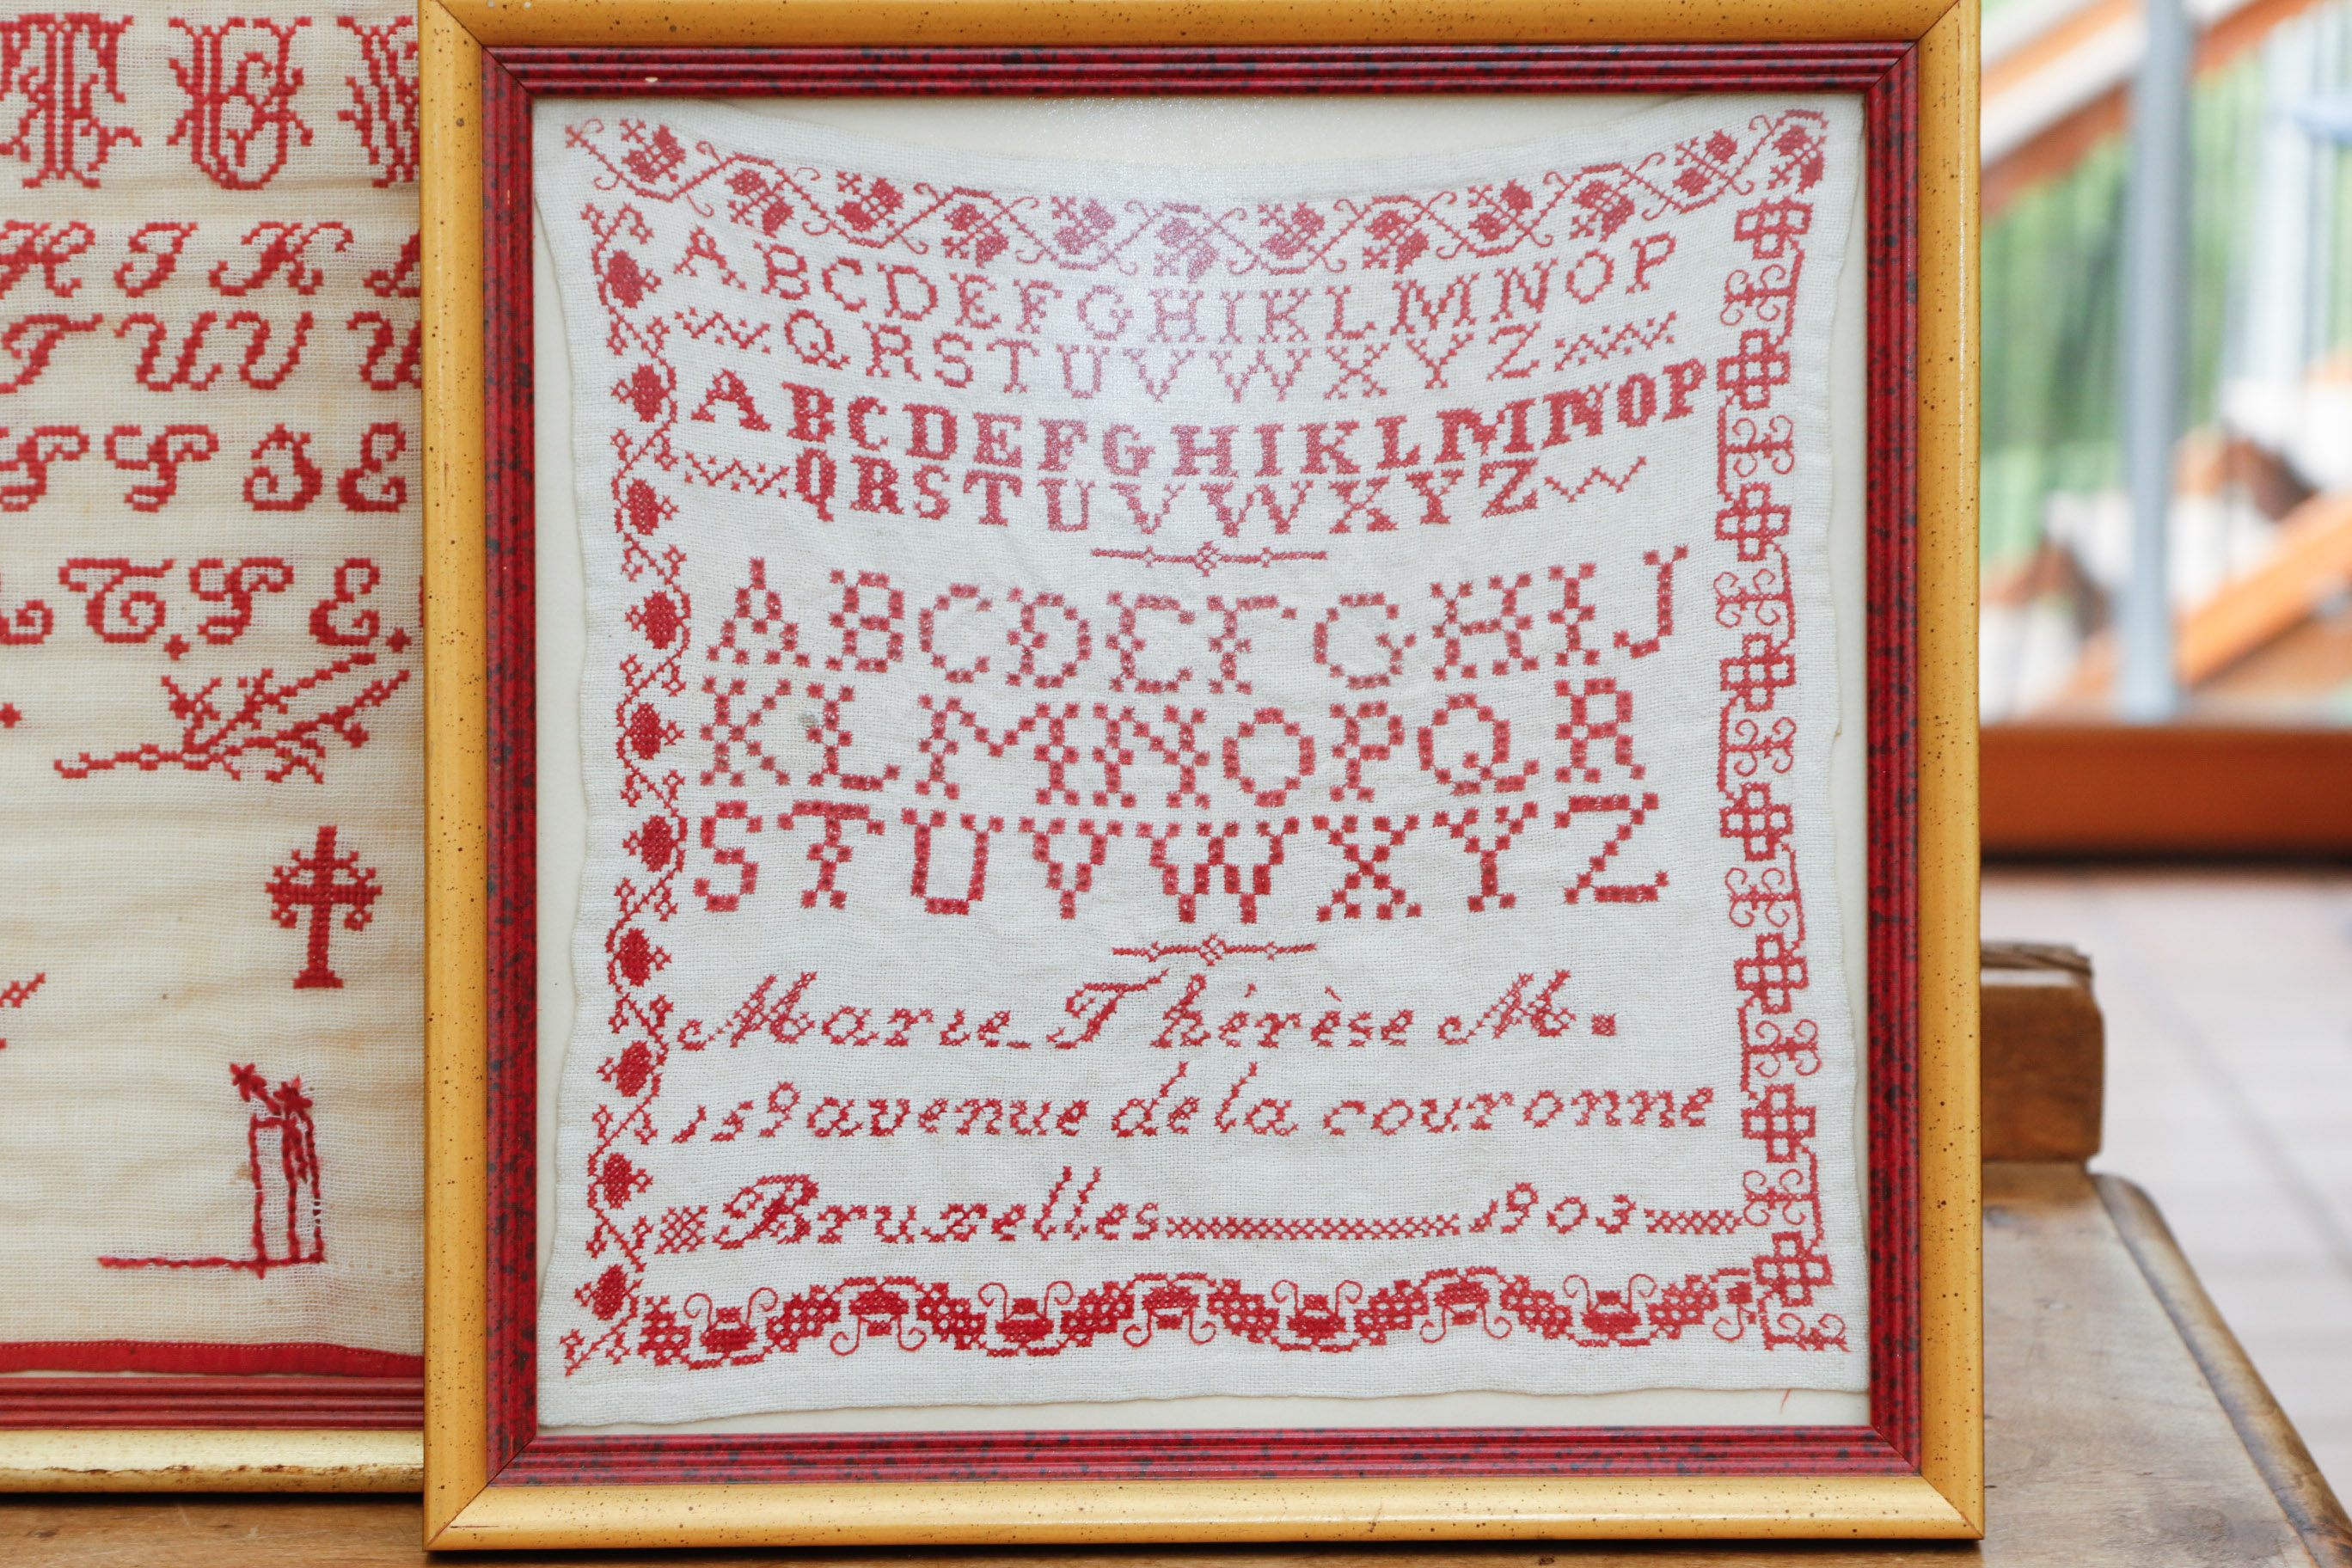 T U
H I K
T U V
ABCDEFGHIKLMNOP
QRSTUVWXYZ
ABCDEFGHIKLMNOP
QRSTUVWXYZ
ABCDEFGHIJ
KLMNOPQR
STUVWXYZ
Marie_Thérèse M.
159 avenue de la couronne
Bruxelles 1903